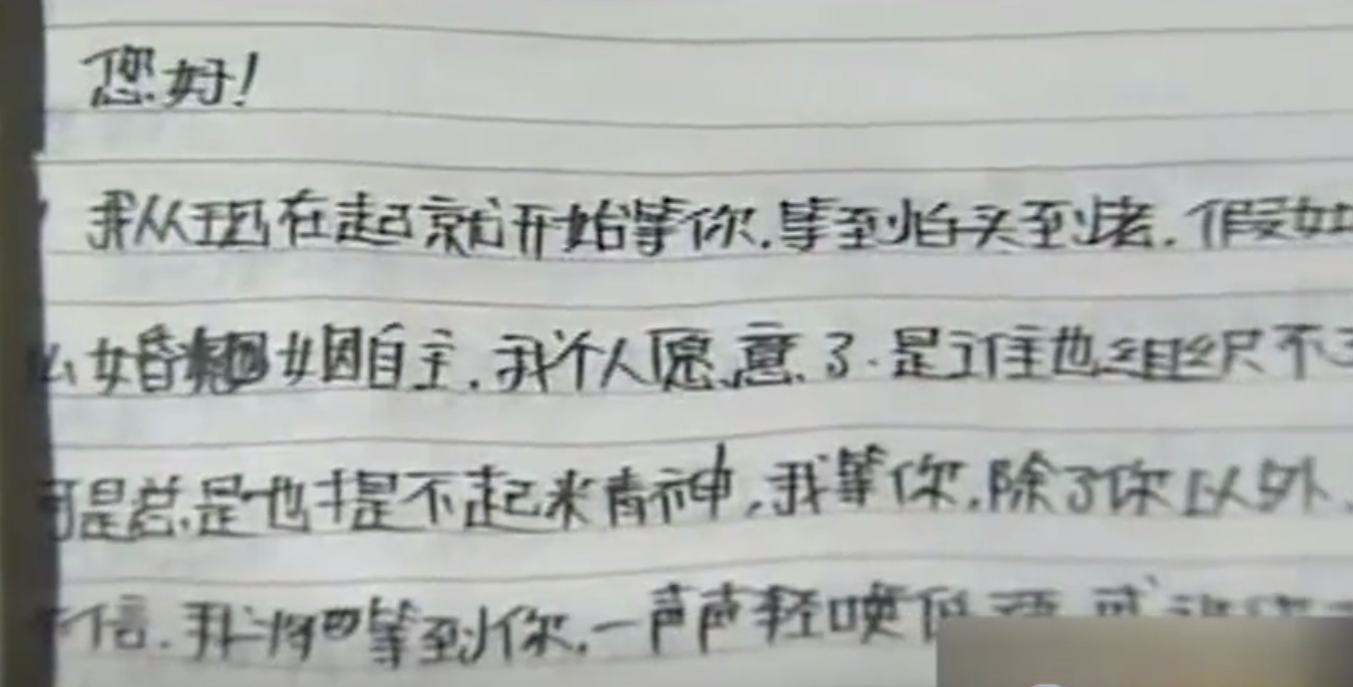 您好！
我从现在起就开始等你.等到白头到老.假如
婚姻自主.我个人愿意了.是谁也组织不了
可是总是也提不起精神,我等你,除了你以外、
信.我将等到你.一声声轻唤你